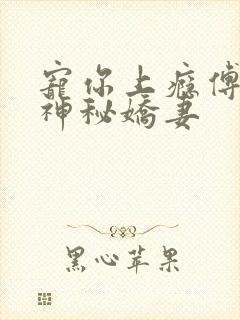 寵你上癮傅
神秘嬌妻
黑心苹果